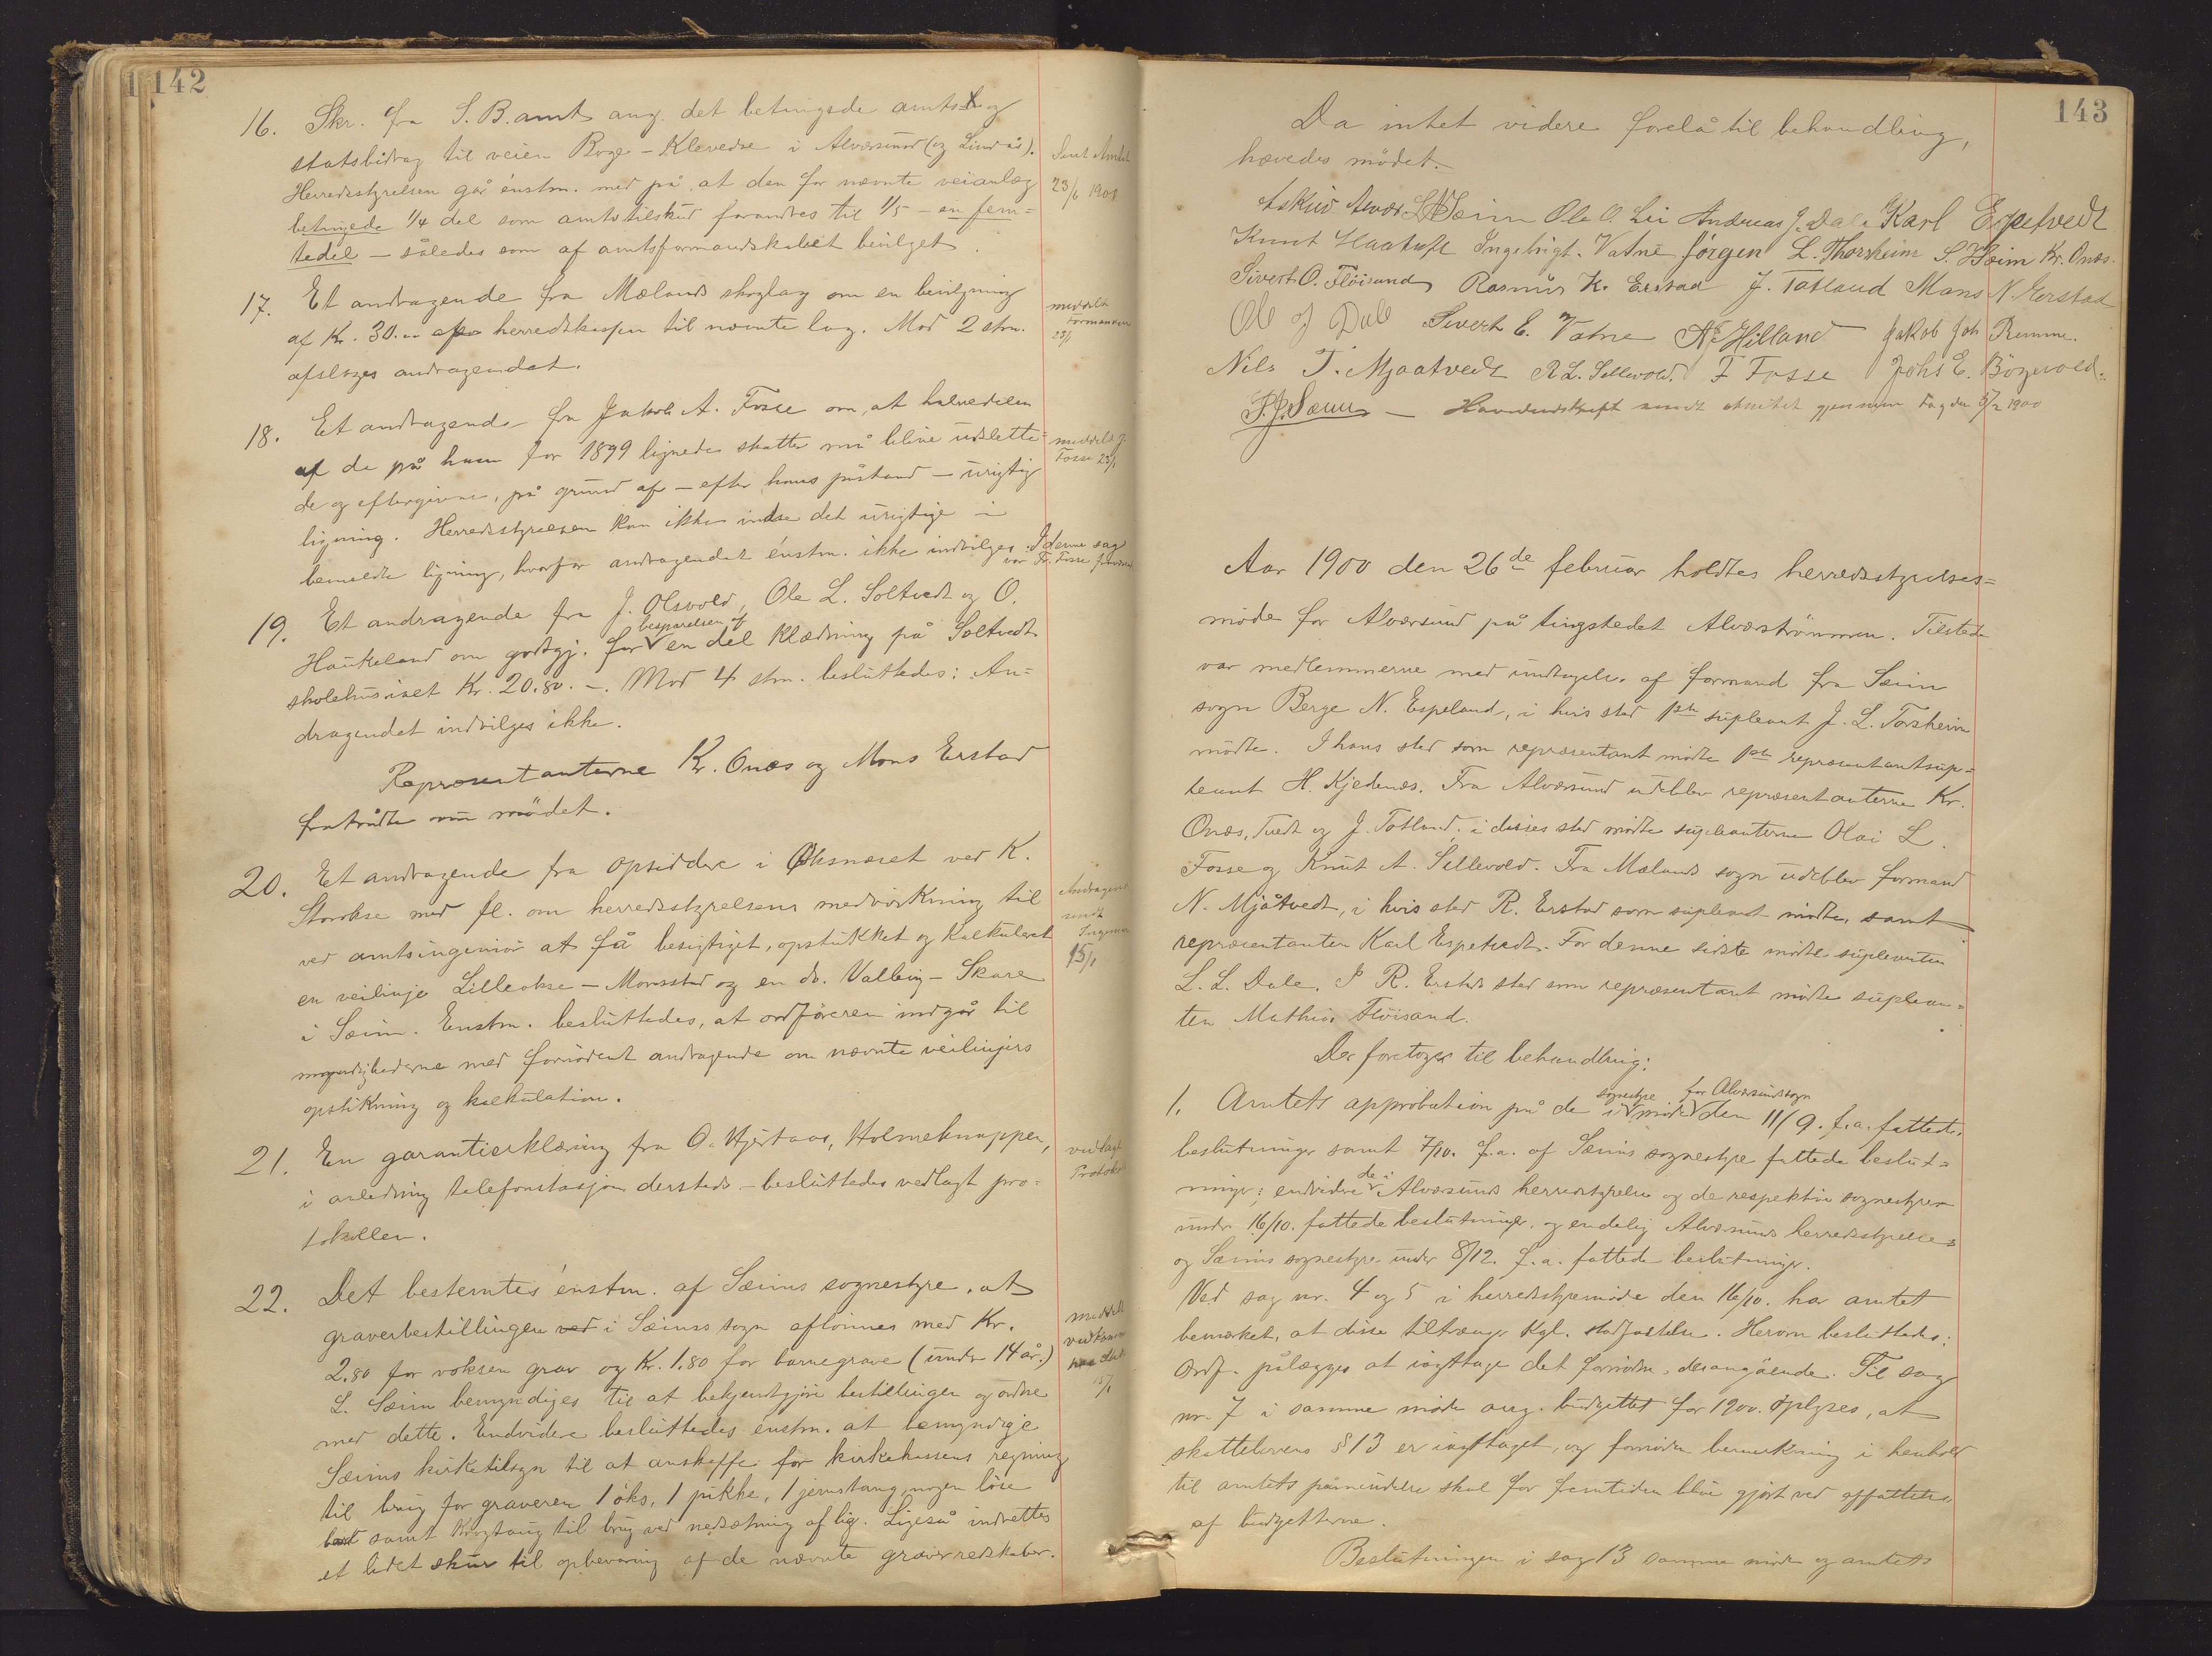 142
16. Skr. fra S. B. amt ang. det betingede amts- og
statsbidrag til veien Boge - Klevedse i Alværsund (og Lindås).
Herredsstyrelsen går énstm. med på at den for nævnte veianlæg
betingede 1/4 del som amtstilskud forandres til 1/5 - en fem=
tedel - således som af amtsformandskabet bevilget.
Sent Amtet
23/1 1900
17. Et andragende fra Mælands skoglag om en bevilgning
af Kr. 30.00 af herredskassen til nævnte lag. Mod 2 stm.
afslåges andragendet.
meddelt
formanden
23/1
18. Et andragende fra Jakob A. Fosse om, at halvdelen
af de på ham for 1899 lignede skatter må blive udslette=
de og eftergivne, på grund af - efter hans påstand - urigtig
ligning. Herredsstyrelsen kan ikke indse det urigtige i
bemeldte ligning, hvorfor andragendet énstm. ikke indvilges. I denne sag
var Fr. Fosse
meddelt J.
Fosse 23/1
19. Et andragende fra J. Olsvold, Ole L. Soltvedt og O.
Haukeland om godtgj. for besparelsen af en del klædning på Soltvedt
skolehusiset Kr. 20.80. -. Mod 4 stm. besluttedes: An=
dragendet indvilges ikke.
Repræsentanterne Kr. Onæs og Mons Erstad
fratrådte nu mødet.
20. Et andragende fra opsiddere i Øksnæset ved K.
Storokse med fl. om herredsstyrelsens medvirkning til
ved amtsingeniør at få besigtiget, opstukket og kalkuleret
en veilinje Lilleokse - Monsstad og en do. Valbeig - Skare
i Sæim. Enstm. besluttedes, at ordføreren indgår til
myndighederne med fornødent andragende om nævnte veilinjers
opstikning og kalkulation.
Andragende
sendt
Ingeniør
15/1
21. En garantierklæring fra O. Hjertaas, Holmeknappen,
i anledning telefonstasjon dersteds - besluttedes vedlagt pro=
tokollen.
vedlagt
Protokol
22. Det bestemtes énstm. af Sæims sognestyre, at
graverbestillingen i Sæims sogn aflønnes med Kr.
2.80 for voksen grav og Kr. 1.80 for barnegrave (under 14 år.)
L. Sæim bemyndiges til at bekjendtgjøre bestillingen og ordne
med dette. Endvidere besluttedes enstm. at bemyndige
Sæims kirketilsyn til at anskaffe for kirkekassens regning
til brug for graveren 1 øks, 1 pikke, 1 jernstang, nogen løse
samt krogtaug til brug ved nedsætning af lig. Ligeså indrettes
et lidet skur til opbevaring af de nævnte graverredskaber.
143
Da intet videre forelå til behandling,
hævedes mødet.
Askild Alvær L. N. Sæim Ole O. Lii Andreas J. Dale Karl Espetvedt
Knut Haatuft Ingebrigt Vatne Jørgen L. Thorsheim S. Hæim Kr. Onæs.
Sivert O. Fløisand Rasmus K. Erstad J. Tatland Mons N. Erstad
Ole J Dale Sivert E. Vatne A Hilland Jakob Joh Remme.
Nils T. Mjaatvedt R L. Sellevold. F Fosse Johs E. Bøgevold.
Aar 1900 den 26de februar holdtes herredsstyrelses=
møde for Alværsund på tingstedet Alværstrømmen. Tilstede
var medlemmerne med undtagelse af formand fra Sæim
sogn Berge N. Espeland, i hvis sted 1ste supleant J. L. Torsheim
mødte. I hans sted som repræsentant mødte 1ste repræsentantsup=
leant H. Kjedenæs. Fra Alværsund udeblev repræsentanterne Kr.
Onæs, Tvedt og J. Tatland; i disses sted mødte supleanterne Olai L.
Fosse og Knut A. Sellevold. Fra Mælands sogn udeblev formand
N. Mjåtvedt, i hvis sted R. Erstad som supleant mødte, samt
repræsentanten Karl Espetvedt. For denne sidste mødte supleanten
L. L. Dale. I R. Erstads sted som repræsentant mødte suplean=
ten Mathias Fløisand.
Der foretoges til behandling:
1. Amtets approbation på de i sognestyremøde for Alværsunds sogn den 11/9. f.a. fattede
beslutninger samt 7/10. f.a. af Sæims sognestyre fattede beslut=
ninger; endvidere de i Alværsunds herredsstyrelse og de respektive sognestyrer
under 16/10. fattede beslutninger, og endelig Alværsunds herredsstyrelses
og Sæims sognestyre under 8/12. f.a. fattede beslutninger.
Ved sag nr. 4 og 5 i herredsstyremøde den 16/10. har amtet
bemærket, at disse tiltrænger kgl. stadfæstelse. Herom besluttedes:
Ordf. pålægges at iagttage det fornødne desangående. Til sag
nr. 7 i samme møde ang. budgettet for 1900 oplyses, at
skattelovens § 13 er iagttaget, og fornøden bemærkning i henhold
til amtets påmindelse skal for fremtiden blive gjort ved affattelse
af budgetterne.
Beslutningen i sag 13 samme møde og amtets